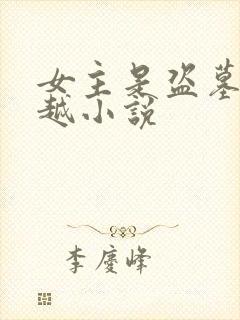 女主是盗墓
越小說
李慶峰